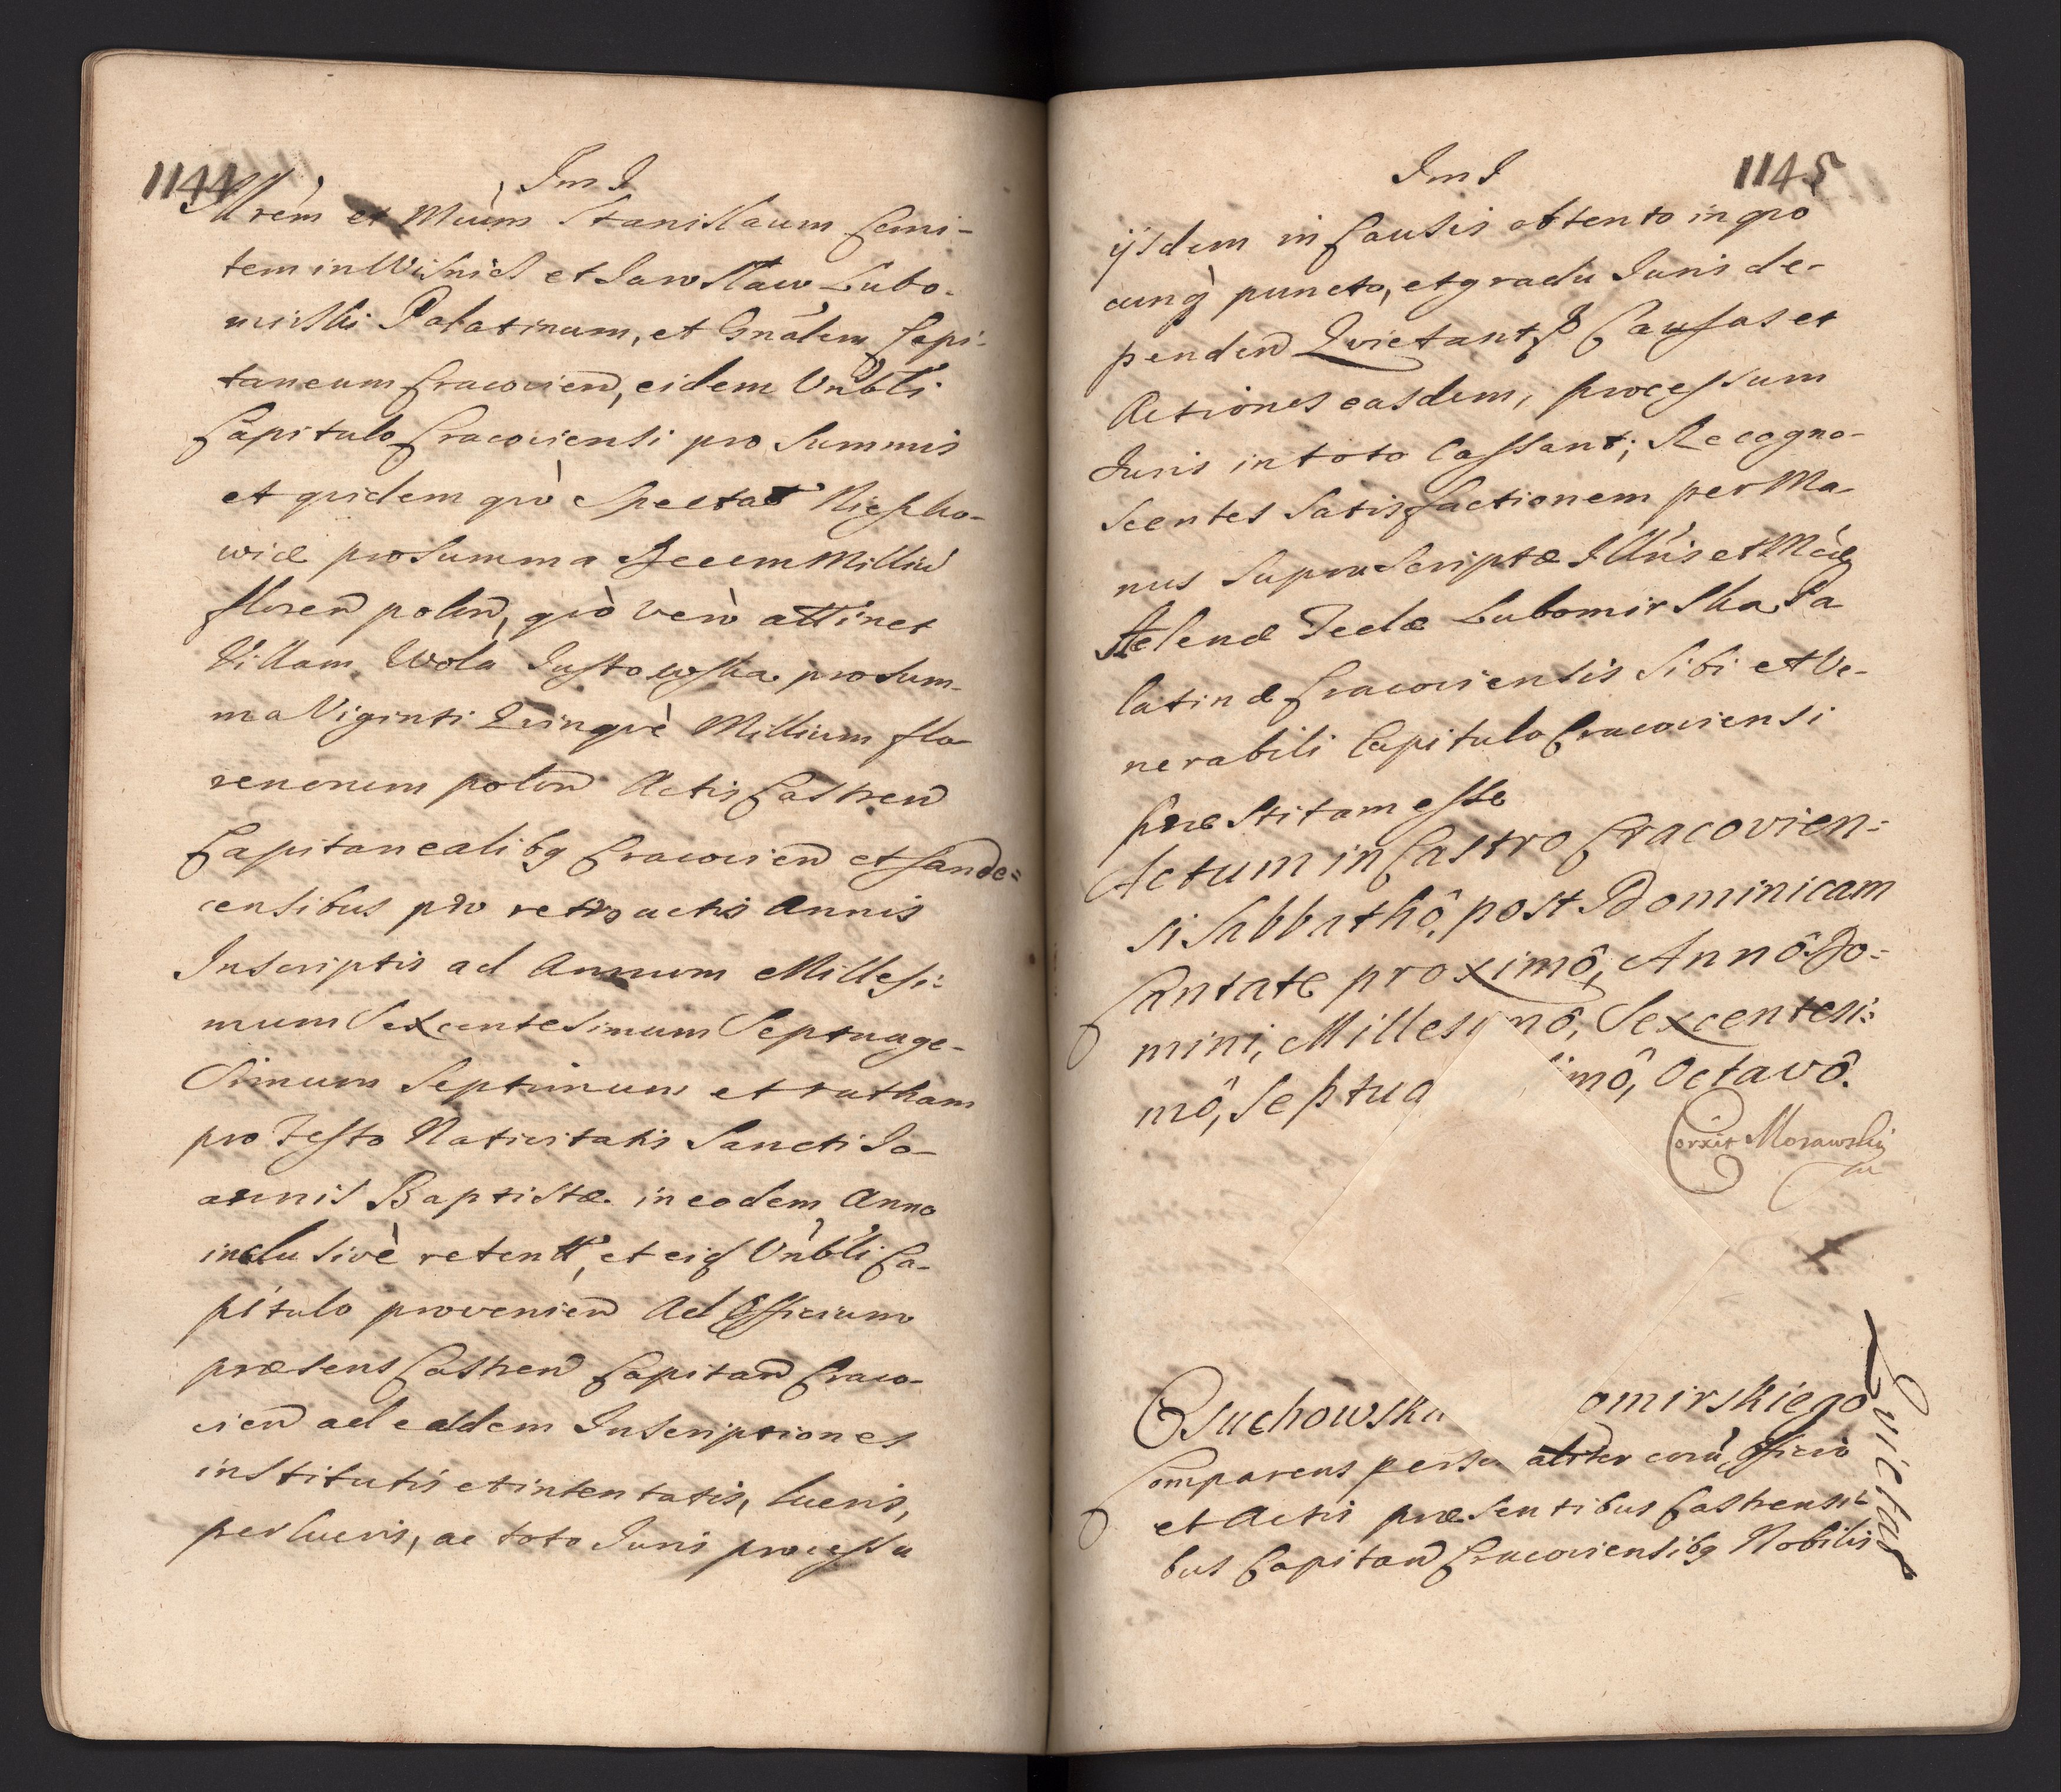 1144
Im I
Illrem et Mcum Stanislaum Comi-
tem in Wisnicz et Jaroslaw Lubo-
mirski Palatinum, et Gnalem Capi-
taneum Cracovien, eidem Vnbli
Capitulo Cracoviensi pro Summis
et quidem quo Spectat
wice pro Summa Decem Milliu
floren polon, quò verò attinet
Villam Wola Justowska pro sum-
ma Viginti Quinquè Millium flo-
renorum polon Actis Castren
Capitanealibq Cracovien et Sande=
censibus pro retroactis Annis
Inscriptis ad Annum Millesi-
mum Sexcentesimum Septuage-
Simum Septimum et ratham
pro Festo Nativitatis Sancti Jo-
annis Baptistæ in eodem Anno
inclusivè retentt, et eid Vnbli Ca-
pitulo provenien Ad Officium
præsens Castren Capitan Craco-
vien ad easdem Inscriptiones
institutis et intentatis, lucris,
perlucris, ac toto Juris processu
1145
Im I
ijsdem in Causis obtento in quo
cunq puncto, et gradu Juris de-
penden Quietant Causas et
Actiones easdem, processum
Juris in toto Cassant; Recogno-
scentes Satisfactionem per Ma-
nus Supra Scriptæ Illris et Mcæ
Helenæ Teclæ Lubomirska Pa
latinæ Cracoviensis Sibi et Ve-
nerabili Capitulo Cracoviensi
præstitam esse
Actum in Castro Cracovien=
si Sabbathô, post Dominicam
Cantate proximô, Annô Do=
mini, Millesimô, Sexcentesi=
mô, Septua imô, Octavô.
Corxit Morawski
Osuchowska omirskiego
Comparens perso aliter corù Officio
et Actis præsentibus Castrensi-
bus Capitan Cracoviensibq Nobilis
Quietat